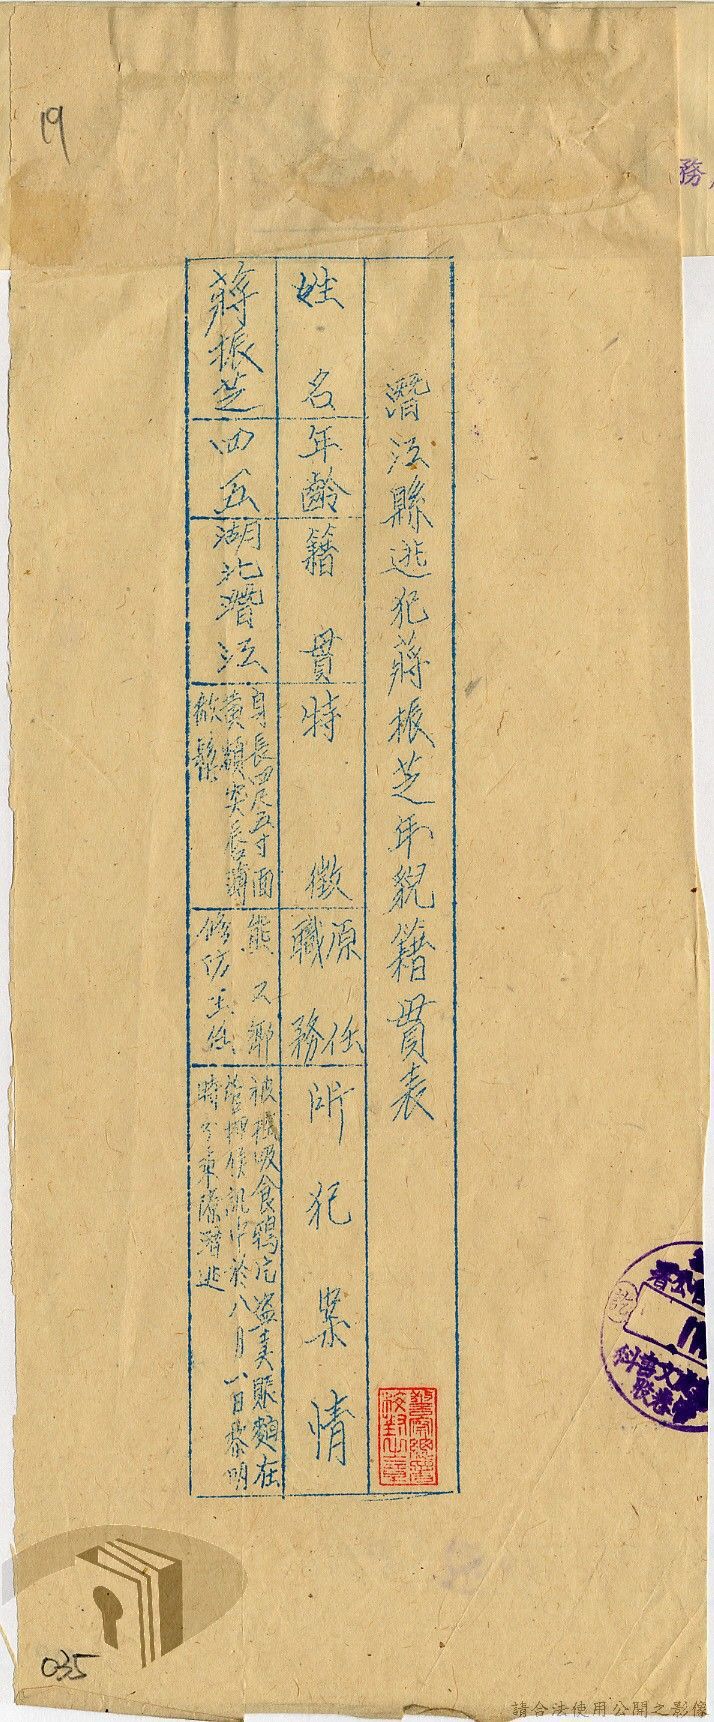 19
務
潛江縣逃犯蔣振芝年貌籍貫表
姓名
年齡
籍貫
特徵
原任
職務
所犯案情
蔣振芝
四五
湖北潛江
身長四尺五寸面
黃額突唇薄
微鬍
熊口鄉
修防主任
被控吸食鴉片盜賣賑麵在
管押候訊中於八月八日黎明
時分乘隙潛逃
校對之章
035
請合法使用公開之影像